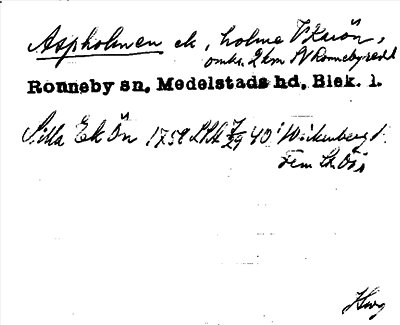 Aspholmen ek, holme V Karön,
omkr. 2 km SV Ronneby redd
Ronneby sn, Medelstads hd, Blek. l.
Lilla Ek Ön 1759 LSA 40 i Wickenberg
Fem
Hwg